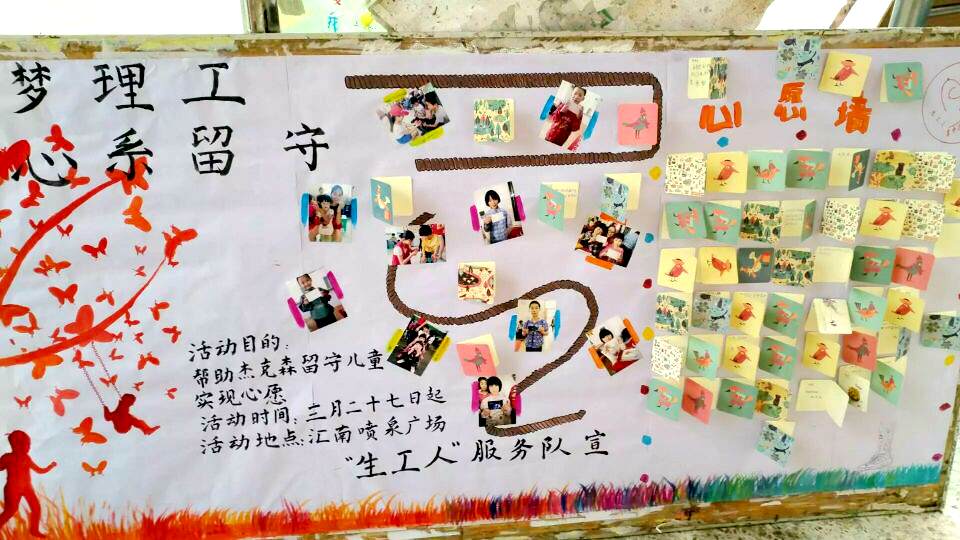 梦理工
心系留守
心愿墙
活动目的:
帮助杰克森留守儿童
实现心愿
活动时间:三月二十七日起
活动地点:汇南喷泉广场
"生工人"服务队宣